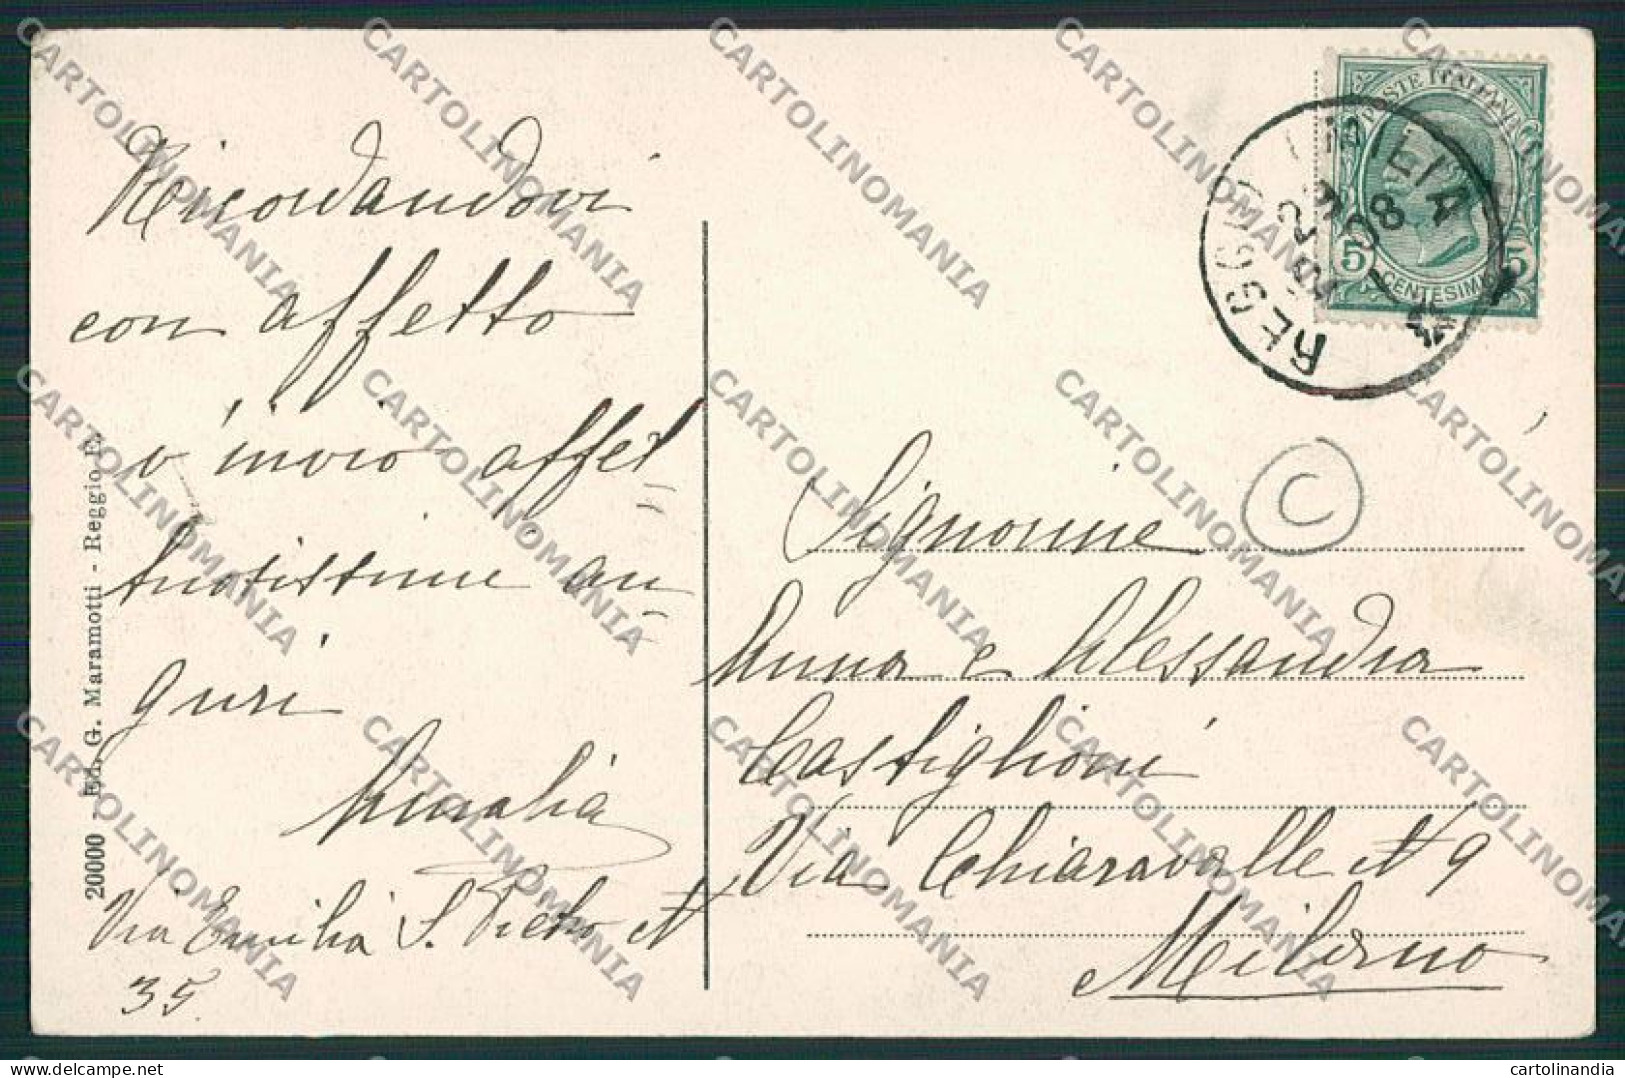 Ricordandovi
con affetto
v'invio affet=
tuosissimi au=
guri
Via Emilia S. Pietro N
35.
20000 - Ed. G. Maramotti - Reggio E.
POSTE ITALIANE
5 5
CENTESIMI
REGGIO EMILIA
08
C
Signorine
Anna e Alessandra
Castiglioni
Via Chiaravalle N 9
Milano
CARTOLINOMANIA
www.delcampe.net
cartolinandia